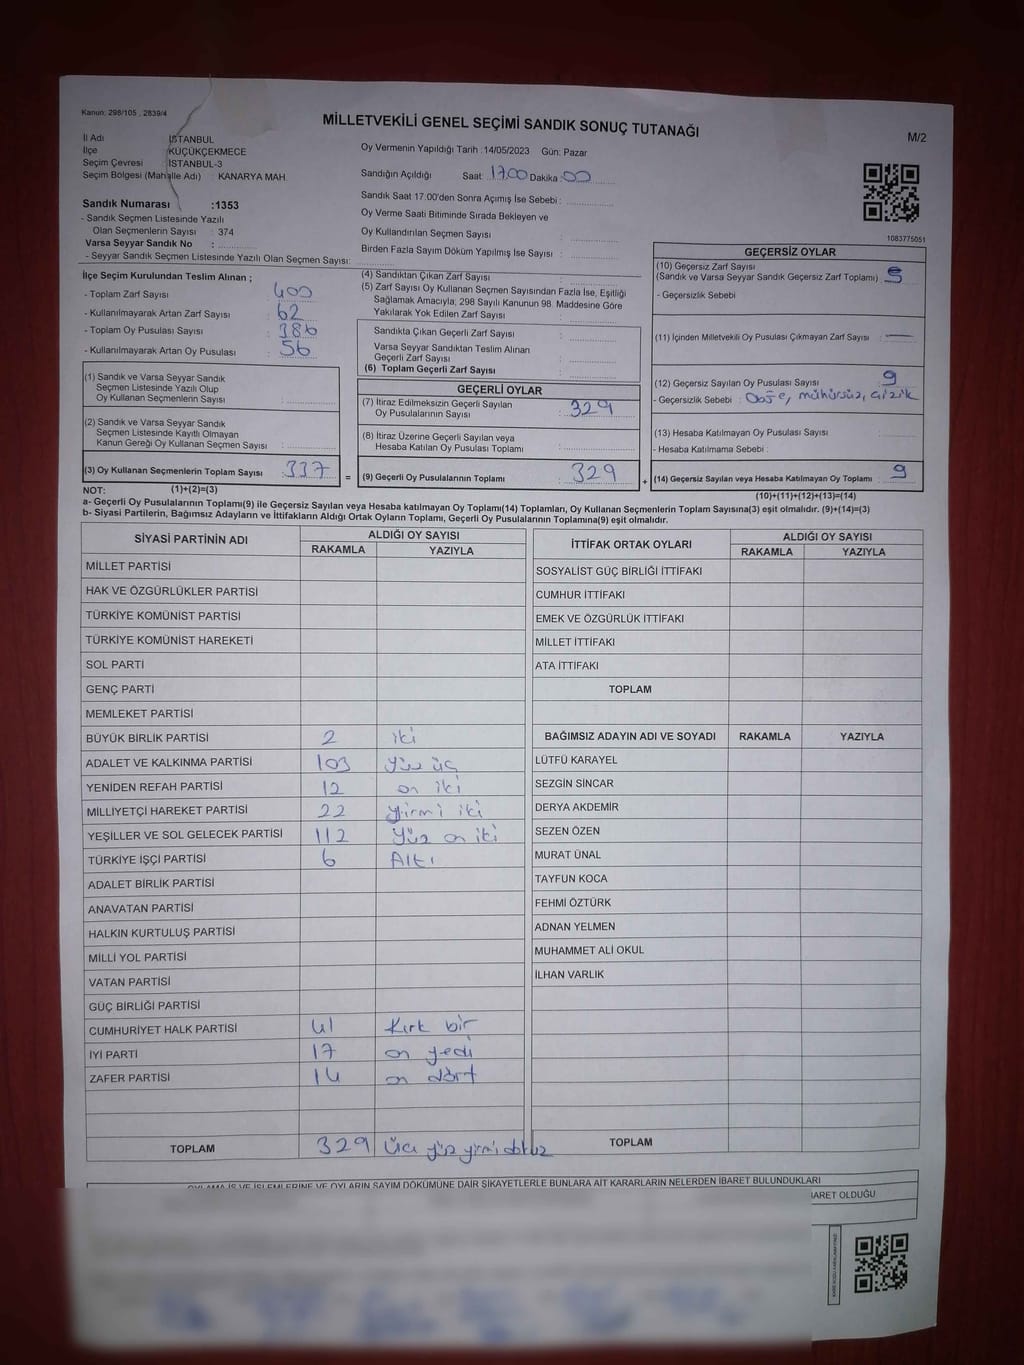 Kanun: 298/105 , 2839/4
MİLLETVEKİLİ GENEL SEÇİMİ SANDIK SONUÇ TUTANAĞI
M/2
İl Adı İSTANBUL
İlçe KÜÇÜKÇEKMECE
Seçim Çevresi İSTANBUL-3
Seçim Bölgesi (Mahalle Adı) : KANARYA MAH.
Oy Vermenin Yapıldığı Tarih :14/05/2023 Gün: Pazar
Sandığın Açıldığı Saat: 17.00 Dakika :00
Sandık Saat 17:00'den Sonra Açımış İse Sebebi :
Oy Verme Saati Bitiminde Sırada Bekleyen ve
Oy Kullandırılan Seçmen Sayısı :
Birden Fazla Sayım Döküm Yapılmış İse Sayısı :
Sandık Numarası :1353
- Sandık Seçmen Listesinde Yazılı
Olan Seçmenlerin Sayısı : 374
Varsa Seyyar Sandık No :
- Seyyar Sandık Seçmen Listesinde Yazılı Olan Seçmen Sayısı:
1083775051
İlçe Seçim Kurulundan Teslim Alınan ;
- Toplam Zarf Sayısı : 400
- Kullanılmayarak Artan Zarf Sayısı : 62
- Toplam Oy Pusulası Sayısı : 386
- Kullanılmayarak Artan Oy Pusulası : 56
(1) Sandık ve Varsa Seyyar Sandık
Seçmen Listesinde Yazılı Olup
Oy Kullanan Seçmenlerin Sayısı :
(2) Sandık ve Varsa Seyyar Sandık
Seçmen Listesinde Kayıtlı Olmayan
Kanun Gereği Oy Kullanan Seçmen Sayısı :
(3) Oy Kullanan Seçmenlerin Toplam Sayısı : 337
(4) Sandıktan Çıkan Zarf Sayısı :
(5) Zarf Sayısı Oy Kullanan Seçmen Sayısından Fazla İse, Eşitliği
Sağlamak Amacıyla; 298 Sayılı Kanunun 98. Maddesine Göre
Yakılarak Yok Edilen Zarf Sayısı :
Sandıkta Çıkan Geçerli Zarf Sayısı :
Varsa Seyyar Sandıktan Teslim Alınan
Geçerli Zarf Sayısı :
(6) Toplam Geçerli Zarf Sayısı :
GEÇERLİ OYLAR
(7) İtiraz Edilmeksizin Geçerli Sayılan
Oy Pusulalarının Sayısı : 329
(8) İtiraz Üzerine Geçerli Sayılan veya
Hesaba Katılan Oy Pusulaları Toplamı :
= (9) Geçerli Oy Pusulalarının Toplamı : 329
GEÇERSİZ OYLAR
(10) Geçersiz Zarf Sayısı
(Sandık ve Varsa Seyyar Sandık Geçersiz Zarf Toplamı) :
- Geçersizlik Sebebi
(11) İçinden Milletvekili Oy Pusulası Çıkmayan Zarf Sayısı : —
(12) Geçersiz Sayılan Oy Pusulası Sayısı : 9
- Geçersizlik Sebebi : mühürsüz, çizik
(13) Hesaba Katılmayan Oy Pusulası Sayısı :
- Hesaba Katılmama Sebebi :
+ (14) Geçersiz Sayılan veya Hesaba Katılmayan Oy Toplamı : 9
NOT: (1)+(2)=(3)
(10)+(11)+(12)+(13)=(14)
a- Geçerli Oy Pusulalarının Toplamı(9) ile Geçersiz Sayılan veya Hesaba katılmayan Oy Toplamı(14) Toplamları, Oy Kullanan Seçmenlerin Toplam Sayısına(3) eşit olmalıdır. (9)+(14)=(3)
b- Siyasi Partilerin, Bağımsız Adayların ve İttifakların Aldığı Ortak Oyların Toplamı, Geçerli Oy Pusulalarının Toplamına(9) eşit olmalıdır.
SİYASİ PARTİNİN ADI ALDIĞI OY SAYISI
RAKAMLA YAZIYLA
MİLLET PARTİSİ
HAK VE ÖZGÜRLÜKLER PARTİSİ
TÜRKİYE KOMÜNİST PARTİSİ
TÜRKİYE KOMÜNİST HAREKETİ
SOL PARTİ
GENÇ PARTİ
MEMLEKET PARTİSİ
BÜYÜK BİRLİK PARTİSİ 2 iki
ADALET VE KALKINMA PARTİSİ 103 yüz üç
YENİDEN REFAH PARTİSİ 12 on iki
MİLLİYETÇİ HAREKET PARTİSİ 22 yirmi iki
YEŞİLLER VE SOL GELECEK PARTİSİ 112 yüz on iki
TÜRKİYE İŞÇİ PARTİSİ 6 Altı
ADALET BİRLİK PARTİSİ
ANAVATAN PARTİSİ
HALKIN KURTULUŞ PARTİSİ
MİLLİ YOL PARTİSİ
VATAN PARTİSİ
GÜÇ BİRLİĞİ PARTİSİ
CUMHURİYET HALK PARTİSİ 41 Kırk bir
İYİ PARTİ 17 on yedi
ZAFER PARTİSİ 14 on dört
TOPLAM 329 yirmi dokuz
İTTİFAK ORTAK OYLARI ALDIĞI OY SAYISI
RAKAMLA YAZIYLA
SOSYALİST GÜÇ BİRLİĞİ İTTİFAKI
CUMHUR İTTİFAKI
EMEK VE ÖZGÜRLÜK İTTİFAKI
MİLLET İTTİFAKI
ATA İTTİFAKI
TOPLAM
BAĞIMSIZ ADAYIN ADI VE SOYADI RAKAMLA YAZIYLA
LÜTFÜ KARAYEL
SEZGİN SİNCAR
DERYA AKDEMİR
SEZEN ÖZEN
MURAT ÜNAL
TAYFUN KOCA
FEHMİ ÖZTÜRK
ADNAN YELMEN
MUHAMMET ALİ OKUL
İLHAN VARLIK
TOPLAM
OYLAMA İŞ VE İŞLEMLERİNE VE OYLARIN SAYIM DÖKÜMÜNE DAİR ŞİKAYETLERLE BUNLARA AİT KARARLARIN NELERDEN İBARET BULUNDUKLARI
OLDUĞU